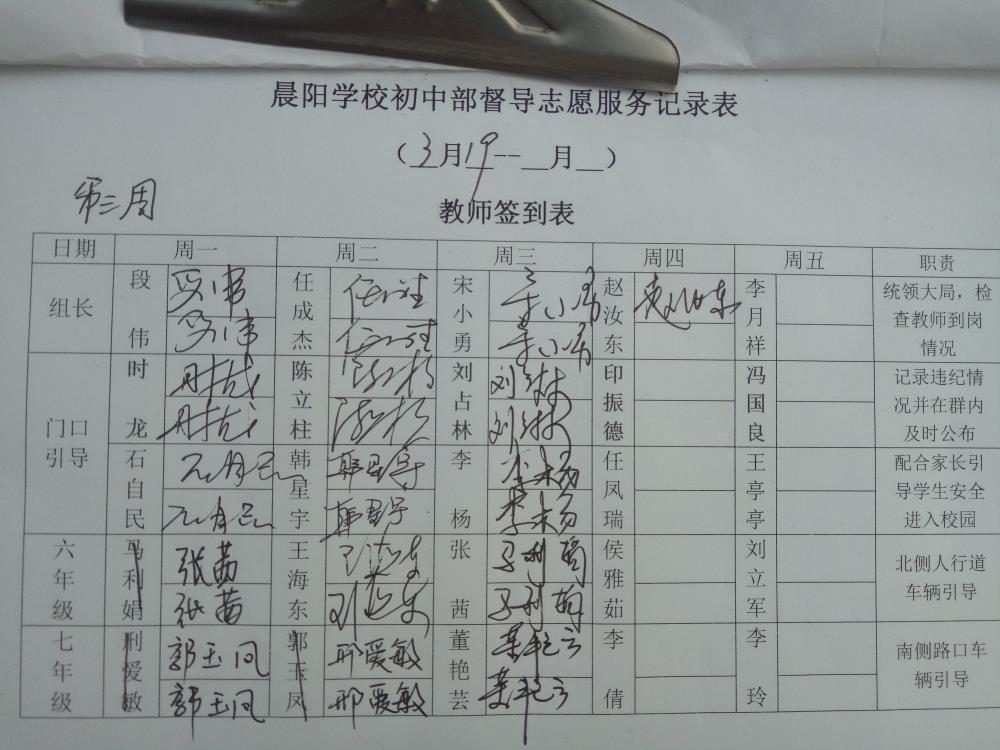 晨阳学校初中部督导志愿服务记录表
（3月19--__月__）
第三周
教师签到表
日期 周一 周二 周三 周四 周五 职责
组长 段伟 段伟 段伟 任成杰 宋小勇 赵汝东 赵汝东 李月祥 统领大局，检查教师到岗情况
门口引导 时龙 时龙 时龙 陈立柱 刘占林 印振德 冯国良 记录违纪情况并在群内及时公布
石自民 石自民 石自民 韩星宇 韩星宇 韩星宇 李杨 李杨 李杨 任凤瑞 王亭亭 配合家长引导学生安全进入校园
六年级 马利娟 张茜 张茜 王海东 张茜 马利娟 马利娟 侯雅茹 刘立军 北侧人行道车辆引导
七年级 刑爱敏 郭玉凤 郭玉凤 郭玉凤 邢爱敏 邢爱敏 董艳芸 李倩 李玲 南侧路口车辆引导